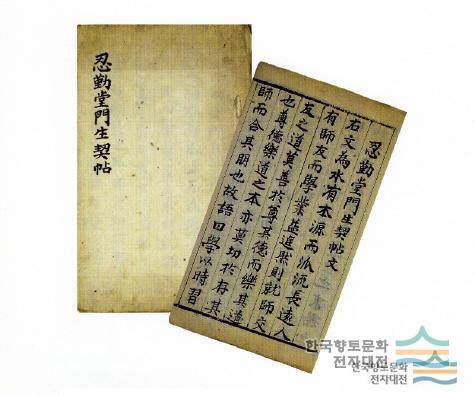 忍勤堂門生契帖
忍勤堂門生契帖文
右文為水有本源而派流長遠人
有師友而學業益進然則就師交
友之道莫善於尊其德而樂其道
也尊德樂道之本亦莫切於存其
師而合其朋也故語曰學以時習
한국향토문화
전자대전
한국향토문화
전자대전